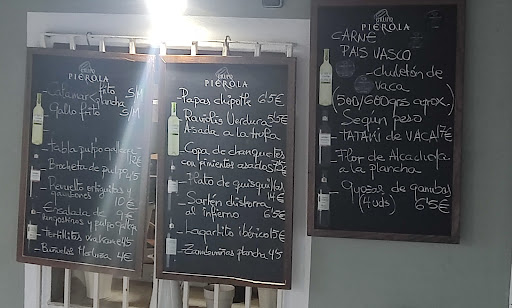 GRUPO
PIEROLA
Calamar frito
plancha S/M
Gallo frito S/M
tabla pulpo gallega
12€
Brocheta de pulpo 9'5
Revuelto ortiguillas y
gambones 10€
Ensalada de 9€
langostinos y pulpo gallega
Tortillitas 4'5
Buñuelos Morcilla 4€
GRUPO
PIEROLA
Papas chipotle 6'5€
Raviolis Verdura 5'5€
Asada a la trufa
Copa de chanquetes
con pimientos asados 7'5€
Plato de quisquillas
14€
Sartén chistorra
al infierno 6'5€
Lagartito ibérico 15€
Zamburiñas plancha
GRUPO
PIEROLA
CARNE
PAIS VASCO
- chuletón de
vaca
(500/600grs aprox.)
Según peso
- TATAKI de VACA 17€
- Flor de Alcachofa
a la plancha
- gyozas de gambas
(4uds) 6'5€